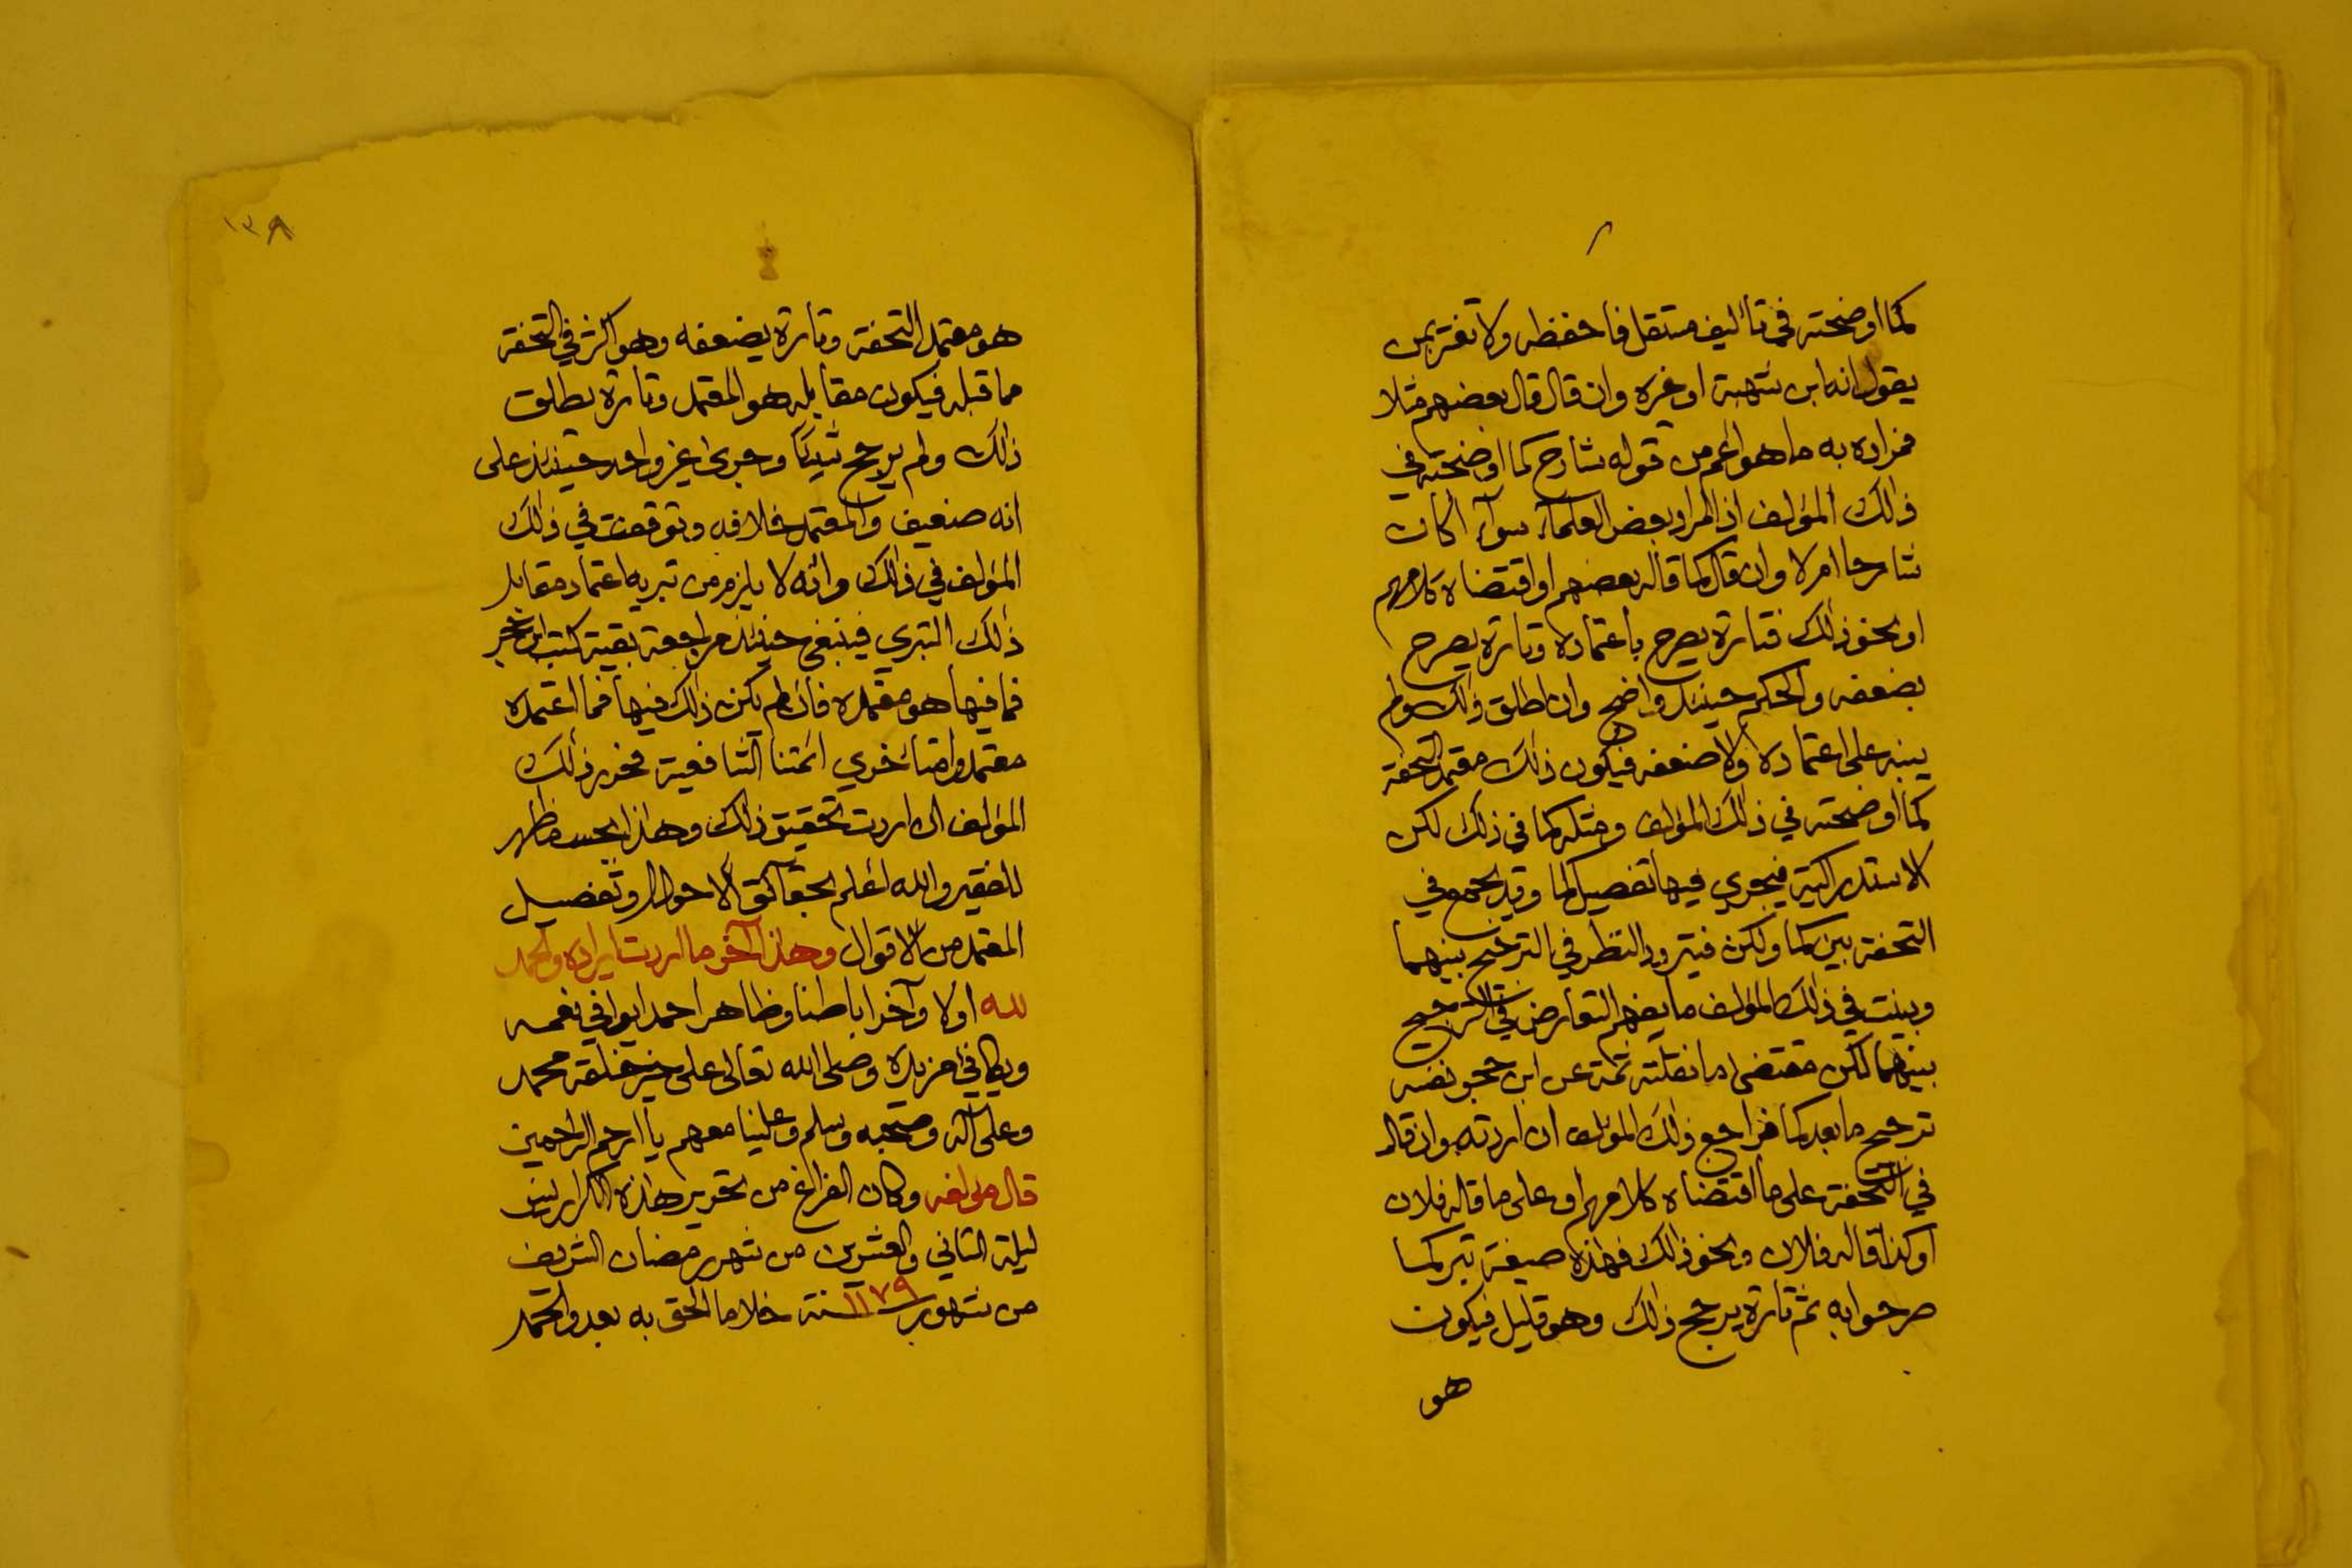 كما اوضحته في تأليف مستقل فاحفظه ولا تغتر بمن
يقول انه ابن شهبة او غيره وان قال قال بعضهم مثلا
فمراده به ما هو اعم من قوله شارح كما اوضحته في
ذلك المؤلف اذ المراد بعض العلمآء سوآء أكان
شارحا ام لا وان قال كما قاله بعضهم او اقتضاه كلامهم
او نحو ذلك فتارة يصرح باعتماده وتارة يصرح
بضعفه والحكم حينئذ واضح وان اطلق ذلك ولم
ينبه على اعتماده ولا ضعفه فيكون ذلك معتمد التحفة
كما اوضحته في ذلك المؤلف ومثله كما في ذلك لكن
الاستدراكية فيجري فيها تفصيل كما وقد يجمع في
التحفة بين كما ولكن فيتردد النظر في الترجيح بينهما
وبينت في ذلك المؤلف ما يفهم التعارض في الترجيح
بينهما لكن مقتضى ما نقلته ثمة عن ابن حجر نفسه
ترجيح ما بعد كما فراجع ذلك المؤلف ان اردته وان قال
في التحفة على ما اقتضاه كلامهم او على ما قاله فلان
او كذا قاله فلان ونحو ذلك فهذه صيغة تبر كما
صرحوا به ثم تارة يرجح ذلك وهو قليل فيكون
هو
١٣٨
هو معتمد التحفة وتارة يضعفه وهو اكثر في التحفة
مما قبله فيكون مقابله هو المعتمد وتارة يطلق
ذلك ولم يرجح شيئا وجرى غير واحد حينئذ على
انه ضعيف والمعتمد خلافه وتوقفت في ذلك
المؤلف في ذلك وانه لا يلزم من تبريه اعتماد مقابل
ذلك التبري فينبغي حينئذ مراجعة بقية كتب ابن حجر
فما فيها هو معتمده فان لم يكن ذلك فيها فما اعتمده
معتمدوا متأخري ائمتنا الشافعية فحرر ذلك
المؤلف ان اردت تحقيق ذلك وهذا بحسب ما ظهر
للفقير والله اعلم بحقآئق الاحوال وتفصيل
المعتمد من الاقوال وهذا آخر ما اردت ايراده والحمد
لله اولا وآخرا باطنا وظاهرا حمدا يوافي نعمه
ويكافي مزيده وصلى الله تعالى على خير خلقه محمد
وعلى آله وصحبه وسلم وعلينا معهم يا ارحم الراحمين
قال مؤلفه وكان الفراغ من تحرير هذه الكراريس
ليلة الثاني والعشرين من شهر رمضان الشريف
من شهور سنة ١١٧٩ خلا ما الحق به بعد والحمد